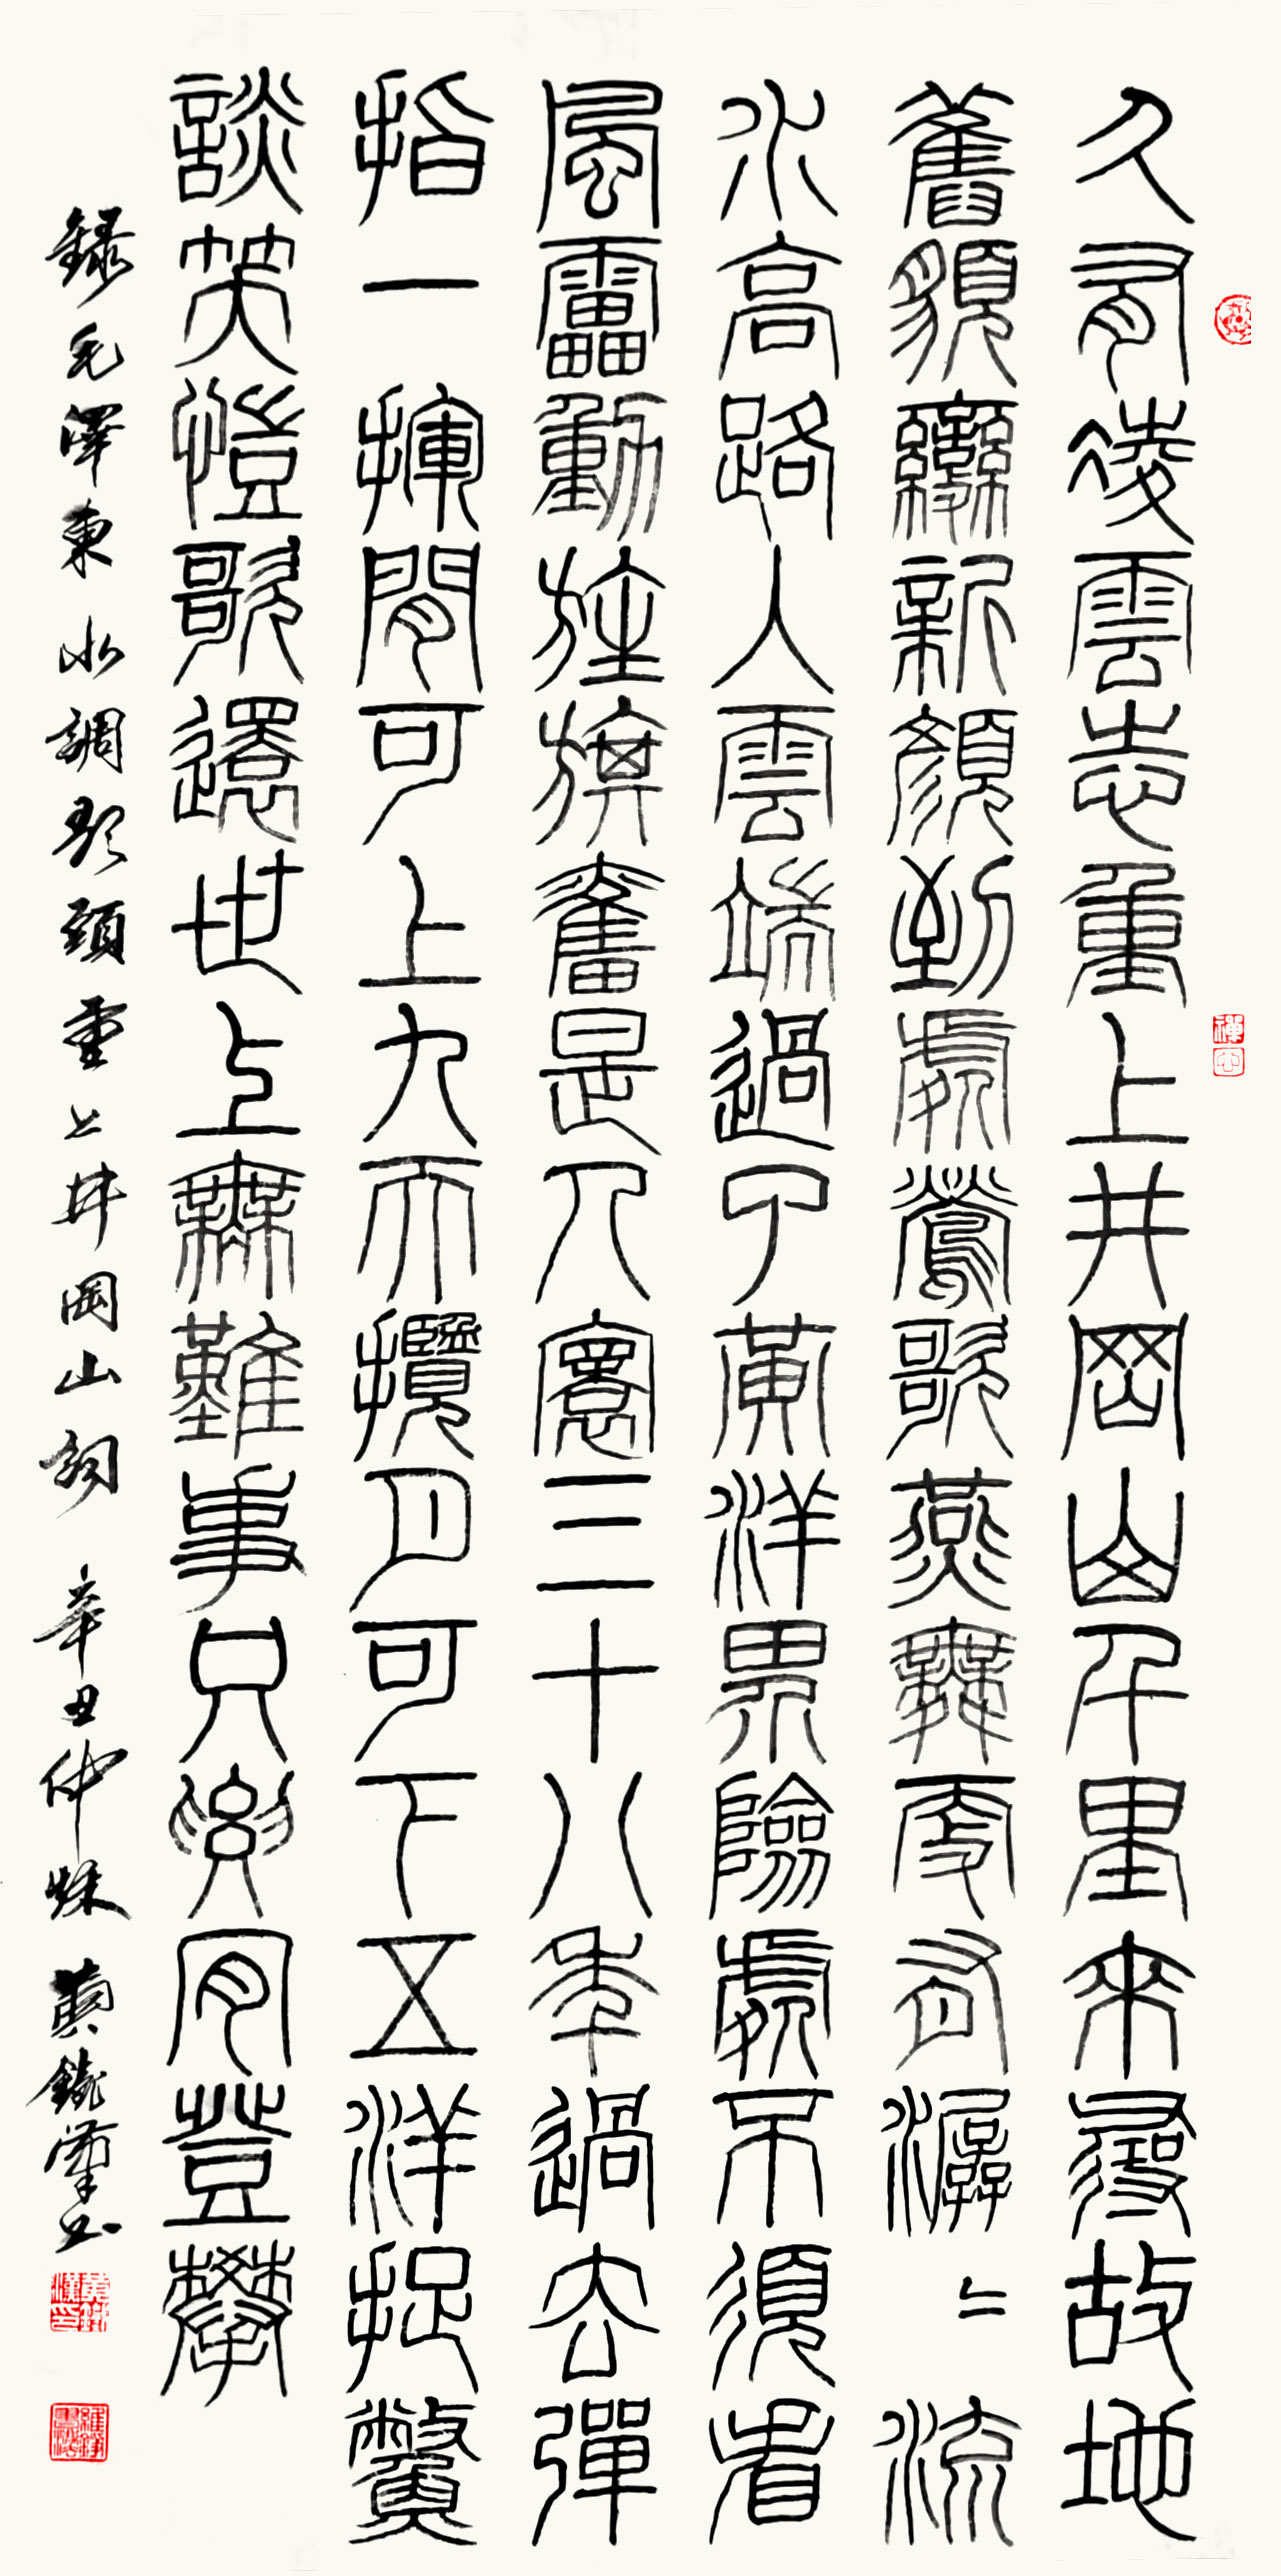 久有凌雲志重上井岡山千里來尋故地
舊貌變新顏到處鶯歌燕舞更有潺〻流
水高路入雲端過了黃洋界險處不須看
風靁動旌旗奮是人寰三十八年過去彈
指一揮間可上九天攬月可下五洋捉鱉
談笑愷歌還世上無難事只要肯登攀
錄毛澤東水調歌頭重上井岡山詞 辛丑仲秋 黃書